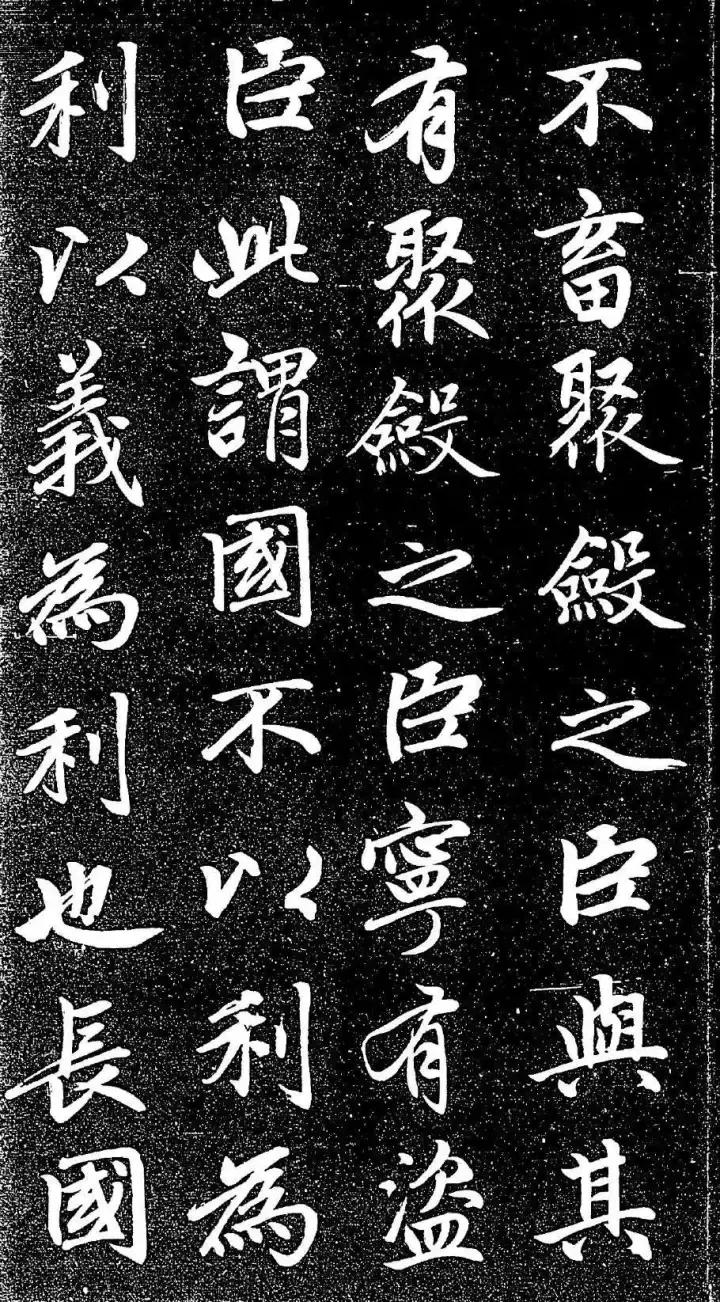 不畜聚斂之臣與其
有聚斂之臣寧有盜
臣此謂國不以利為
利以義為利也長國